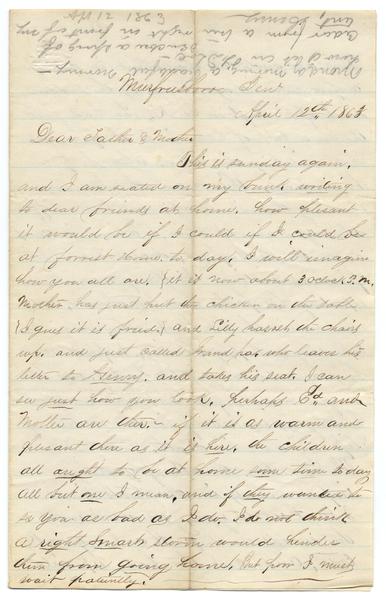 Apl 12 1863
Murfreesboro Ten
April 12th 1863
Dear Father & Mother
This is sunday again.
and I am seated on my bunk writing
to dear friends at home. how plesent
it would be if I could if I could be
at forrest home to day. I will imagin
how you all are. (it is now about 3 oclock P.M.
Mother has just put the chicken on the table
(I guess it is fried.) and Lilly has set the chairs
up. and just called Grand pa. who leaves his
letter to Henry. and takes his seat. I can
se just how you look. perhaps Ed. and
Mollie are ther. - if it is as warm and
plesant there as it is here. the children
all aught to be at home some tim to day
all but one I mean, and if they wanted to
se you as bad as I do. I do not think
a right smart storm would hinder
them from going home. But poor I must
wait patiently.